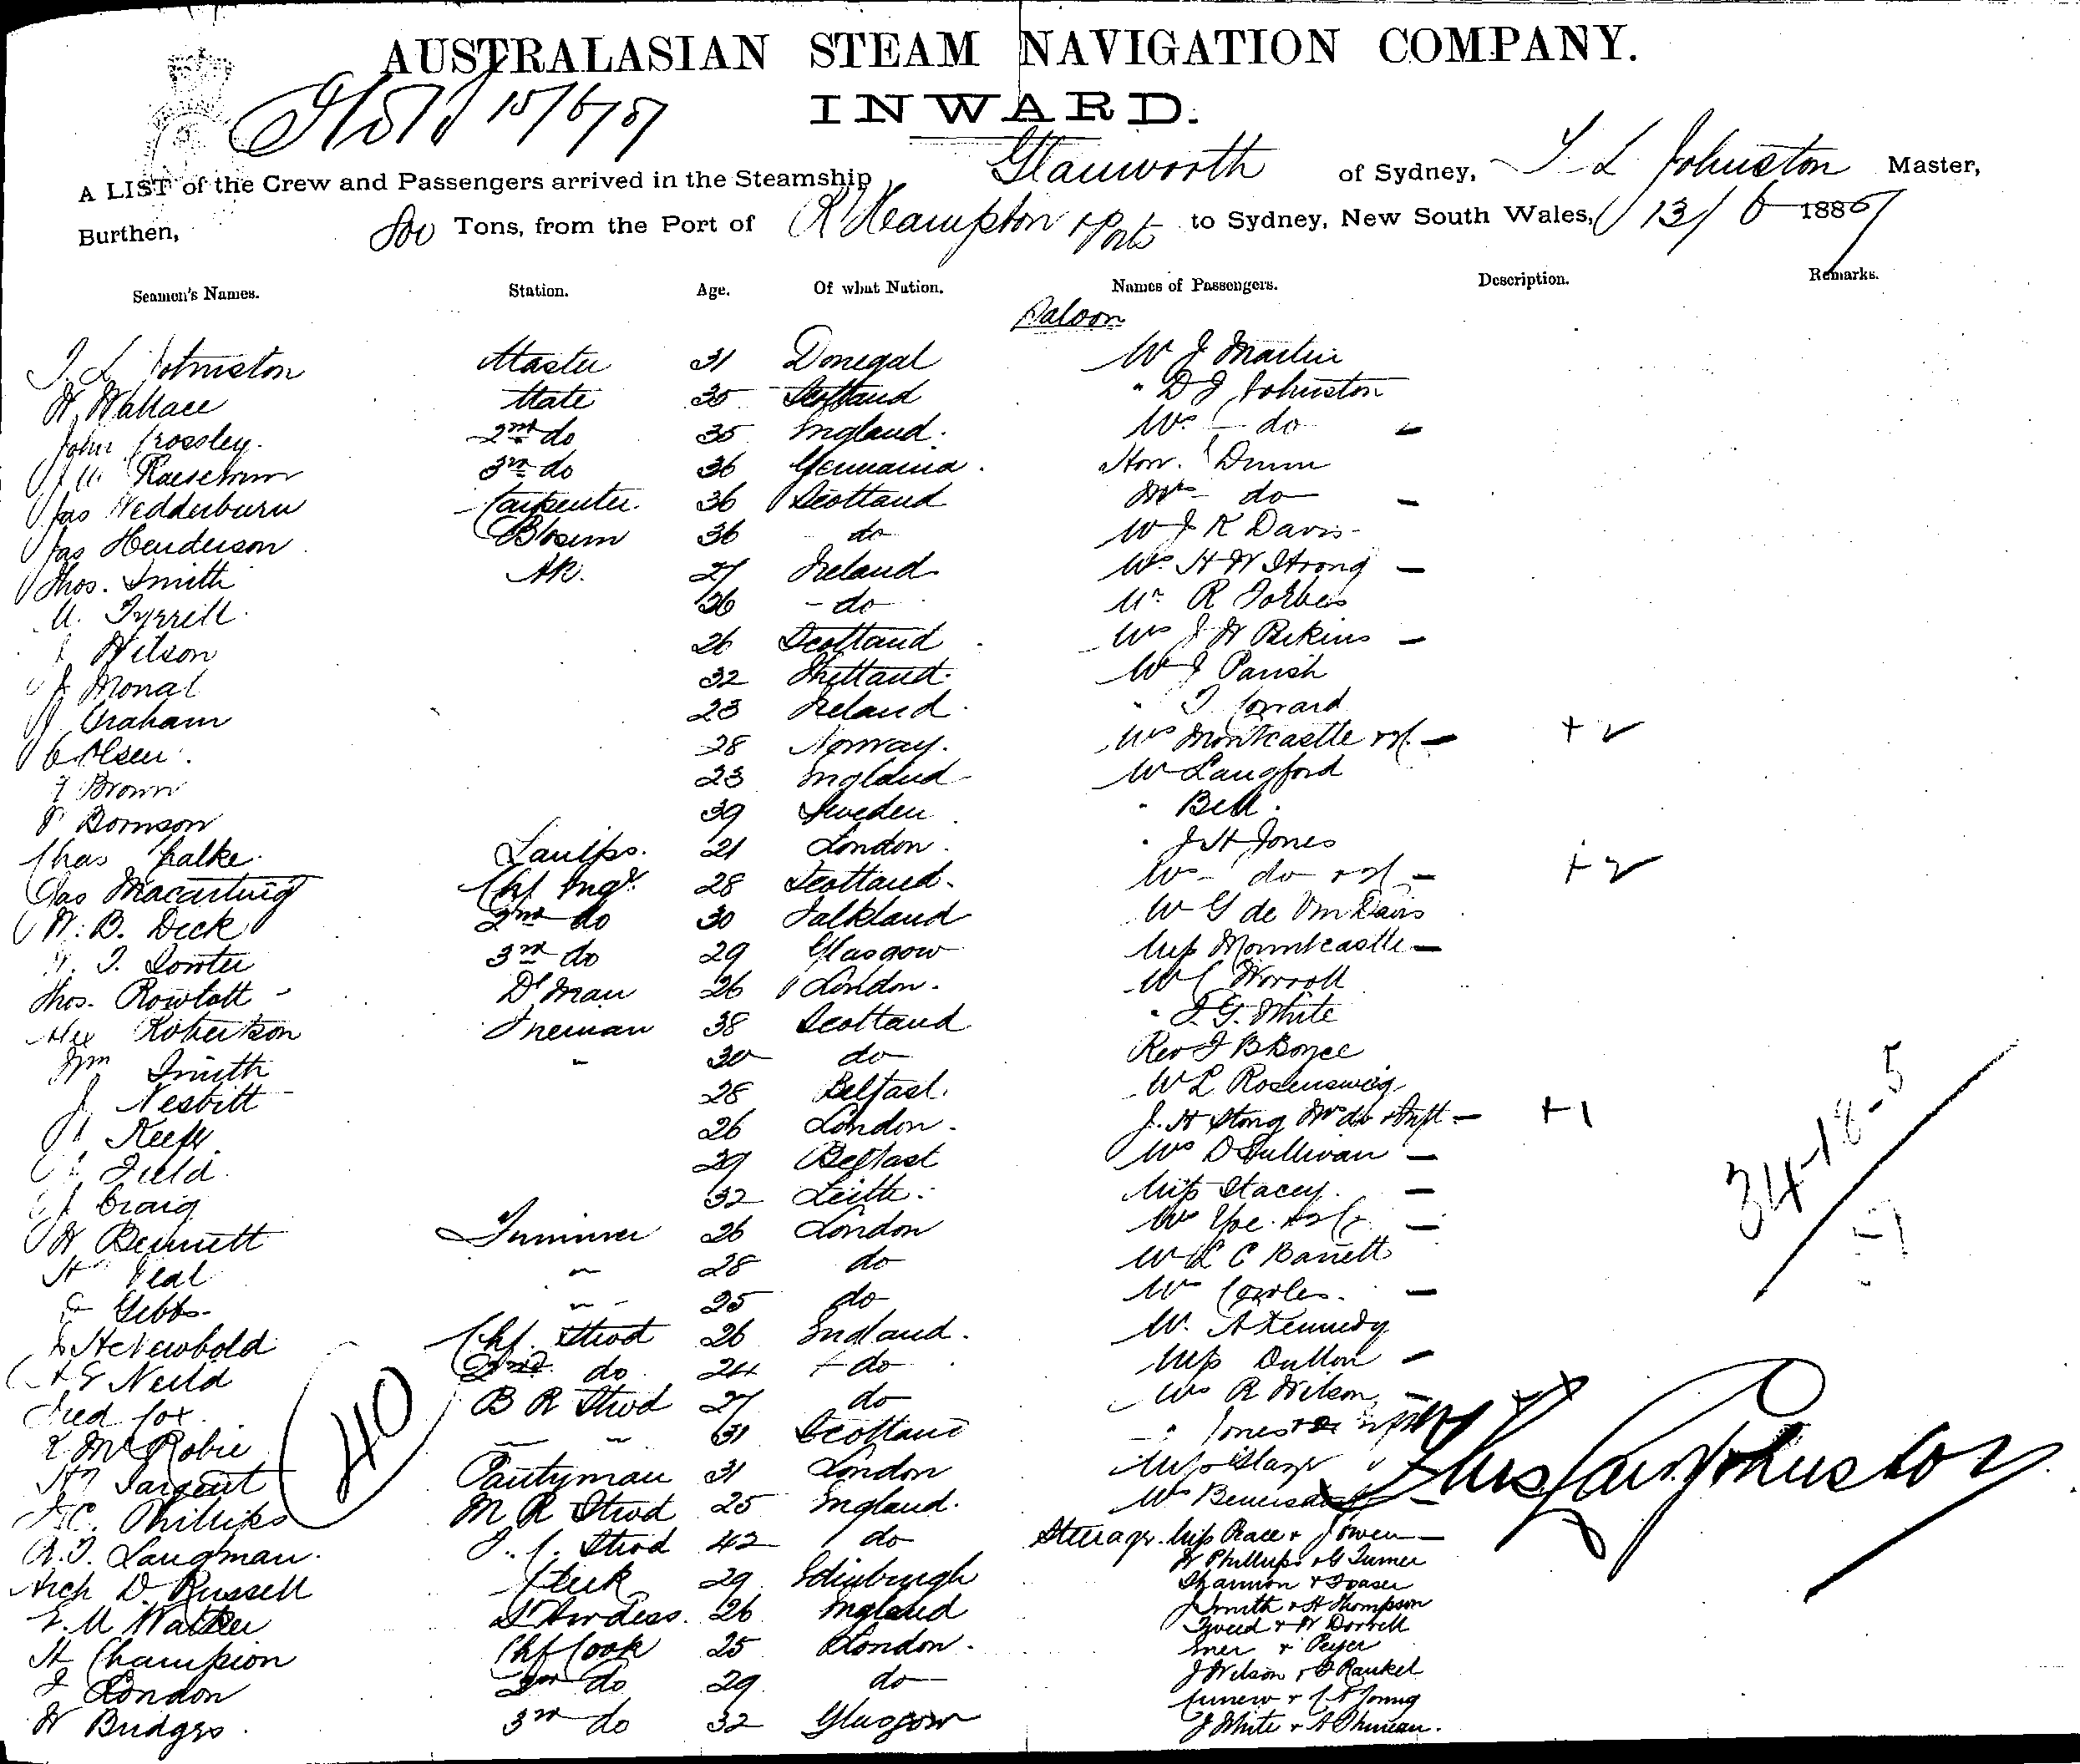 AUSTRALASIAN STEAM NAVIGATION COMPANY.
15/6/87
INWARD.
A LIST of the Crew and Passengers arrived in the Steamship Glanworth of Sydney, T L Johnston Master,
Burthen, 800 Tons, from the Port of R'Hampton & Ports to Sydney, New South Wales, 13/6 1887
Seamen's Names. Station. Age. Of what Nation. Names of Passengers. Description. Remarks.
Saloon
T. L Johnston Master 31 Donegal Mr J Martin
W Wallace Mate 35 Scotland " D J Johnston
John Crossley. 2nd do 35 England. Mrs do -
3rd do 36 Germania. Hon. Dunn
Jas Wedderburn Carpenter. 36 Scotland Mrs do -
Jas Henderson 36 do Mr J K Davis
Thos. Smith AB. 27 Ireland Mrs H W Strong -
M. Tyrrell. 26 - do Mr R Forbes
Wilson 26 Scotland Mrs J W Perkins -
J. Monat 32 Shetland. Mr J Parish
J Graham 23 Ireland. " T
C Olsen. 28 Norway. Mrs Montcastle - + 2
Brown 23 England Mr Langford
39 Sweden " Bell.
Chas Chalke. Lamps. 21 London. " J H Jones
Jas Chf Engr. 28 Scotland. Mrs do - + 2
W. B. Deck 2nd do 30 Falkland Mr G de
3rd do 29 Glasgow Miss Mountcastle -
Thos. Rowlatt Dk man 26 London. Mr C Worroll
Alex Robertson Fireman 38 Scotland " F. G. White
Wm Smith " 30 do Rev F B Boyce
J. Nesbitt 28 Belfast. Mr L Rosensweig
Keefe 26 London. J. H Strong Mrs do & Inft - + 1
Field. 29 Belfast Mrs O Sullivan -
J. Craig 32 Leith. Miss Stacey. -
W Bennett Trimmer 26 London Mrs -
H Veal " 28 do Mr L C Barrett
Gibbs. " 25 do Mrs Cowles. -
H Newbold Chf. Stwd 26 England. Mr. A Kennedy
34-18-5
E Neild 2nd do 24 do Miss Dutton -
Fred Fox. B R Stwd 27 do Mrs R Wilson -
McRobie " " 31 Scotland
Sargent Pantryman 31 London
40
C. Phillips M R Stwd 25 England.
Langman. F. C. Stwd 42 do Steerage. Miss Race & J Owen -
W Phillips & G Turner
Arch D. Russell Clerk 29 Edinburgh Shannon & Fraser
E. M Walker Stwrdess. 26 England J Smith & H Thompson
Tweed & W Dorrell
H Champion Chf Cook 25 London.
J London 2nd do 29 do J Wilson &
W Bridges. 3rd do 32 Glasgow J White & A Duncan.